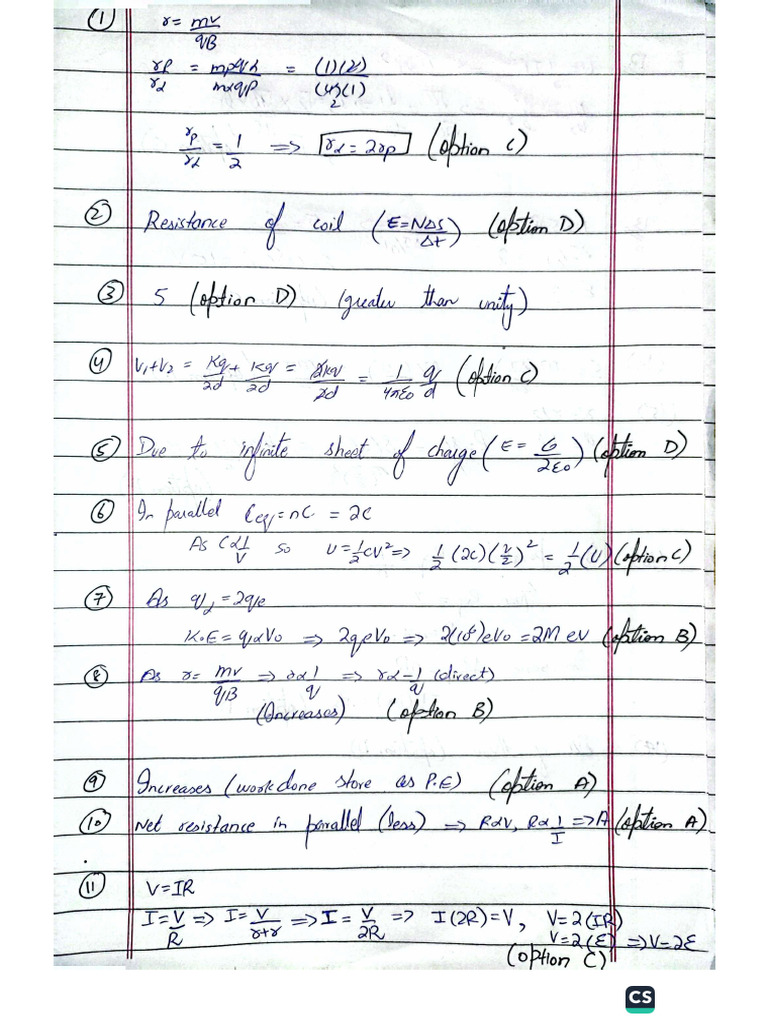 (1) r = mv/qB
rp/rα = mpqα/mαqp = (1)(2)/(4)(1) 2
rp/rα = 1/2 => rα = 2rp (option C)
(2) Resistance of coil (E=NΔS/Δt) (option D)
(3) 5 (option D) (greater than unity)
(4) V1+V2 = Kq/2d + Kq/2d = 2kq/2d = 1/4πε0 q/d (option C)
(5) Due to infinite sheet of charge (E = σ/2ε0) (option D)
(6) In parallel Ceq = nC = 2C
As C∝1/V so U = 1/2 CV² => 1/2 (2C)(V/2)² = 1/2 (U) (option C)
(7) As qα = 2qe
K.E = qαV0 => 2qeV0 => 2(10⁶)eV0 = 2M ev (option B)
(8) As r = mv/qB => r∝1/q => r∝-1/q (direct)
(Increases) (option B)
(9) Increases (workdone store as P.E) (option A)
(10) Net resistance in parallel (less) => R∝V, R∝1/I => A (option A)
(11) V=IR
I=V/R => I=V/r+r => I=V/2R => I(2R)=V, V=2(IR)
V=2(ε) => V=2ε
(option C)
CS